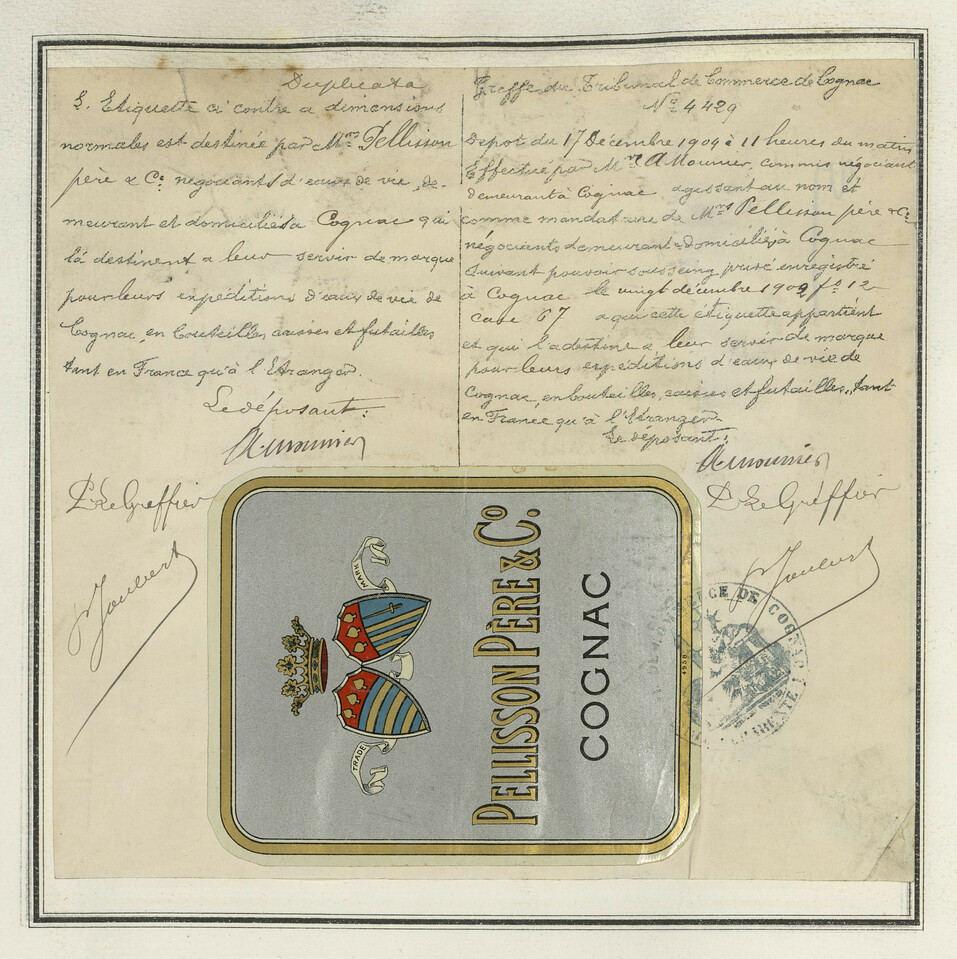 Duplicata
L'Etiquette ci contre a dimensions
normales est destinée par Mrs Pellisson
père & Co négociants d'eaux de vie, de-
meurant et domiciliés à Cognac qui
la destinent a leur servir de marque
pour leurs expéditions d'eaux de vie de
Cognac, en bouteilles caisses et futailles
tant en France qu'à l'Etranger.
Le déposant:
A. Mounier
Pr Le Greffier
Joubert
Greffe du Tribunal de Commerce de Cognac
No 4429
Depot du 17 Décembre 1909 à 11 heures du matin
Effectué par Mr A Mounier, commis négociant
demeurant à Cognac agissant au nom et
comme mandataire de Mrs Pellisson père & Co
négociants demeurant & domiciliés à Cognac
suivant pouvoir sous seing privé enregistré
à Cognac le vingt décembre 1909 fo 12
case 67 a qui cette étiquette appartient
et qui l'a destine a leur servir de marque
pour leurs expéditions d'eaux de vie de
Cognac, en bouteilles, caisses et futailles, tant
en France qu'à l'Etranger
Le déposant:
A. Mounier
Pr Le Greffier
Joubert
TRADE MARK
PELLISSON PÈRE & Co.
COGNAC
4958
DE COGNAC